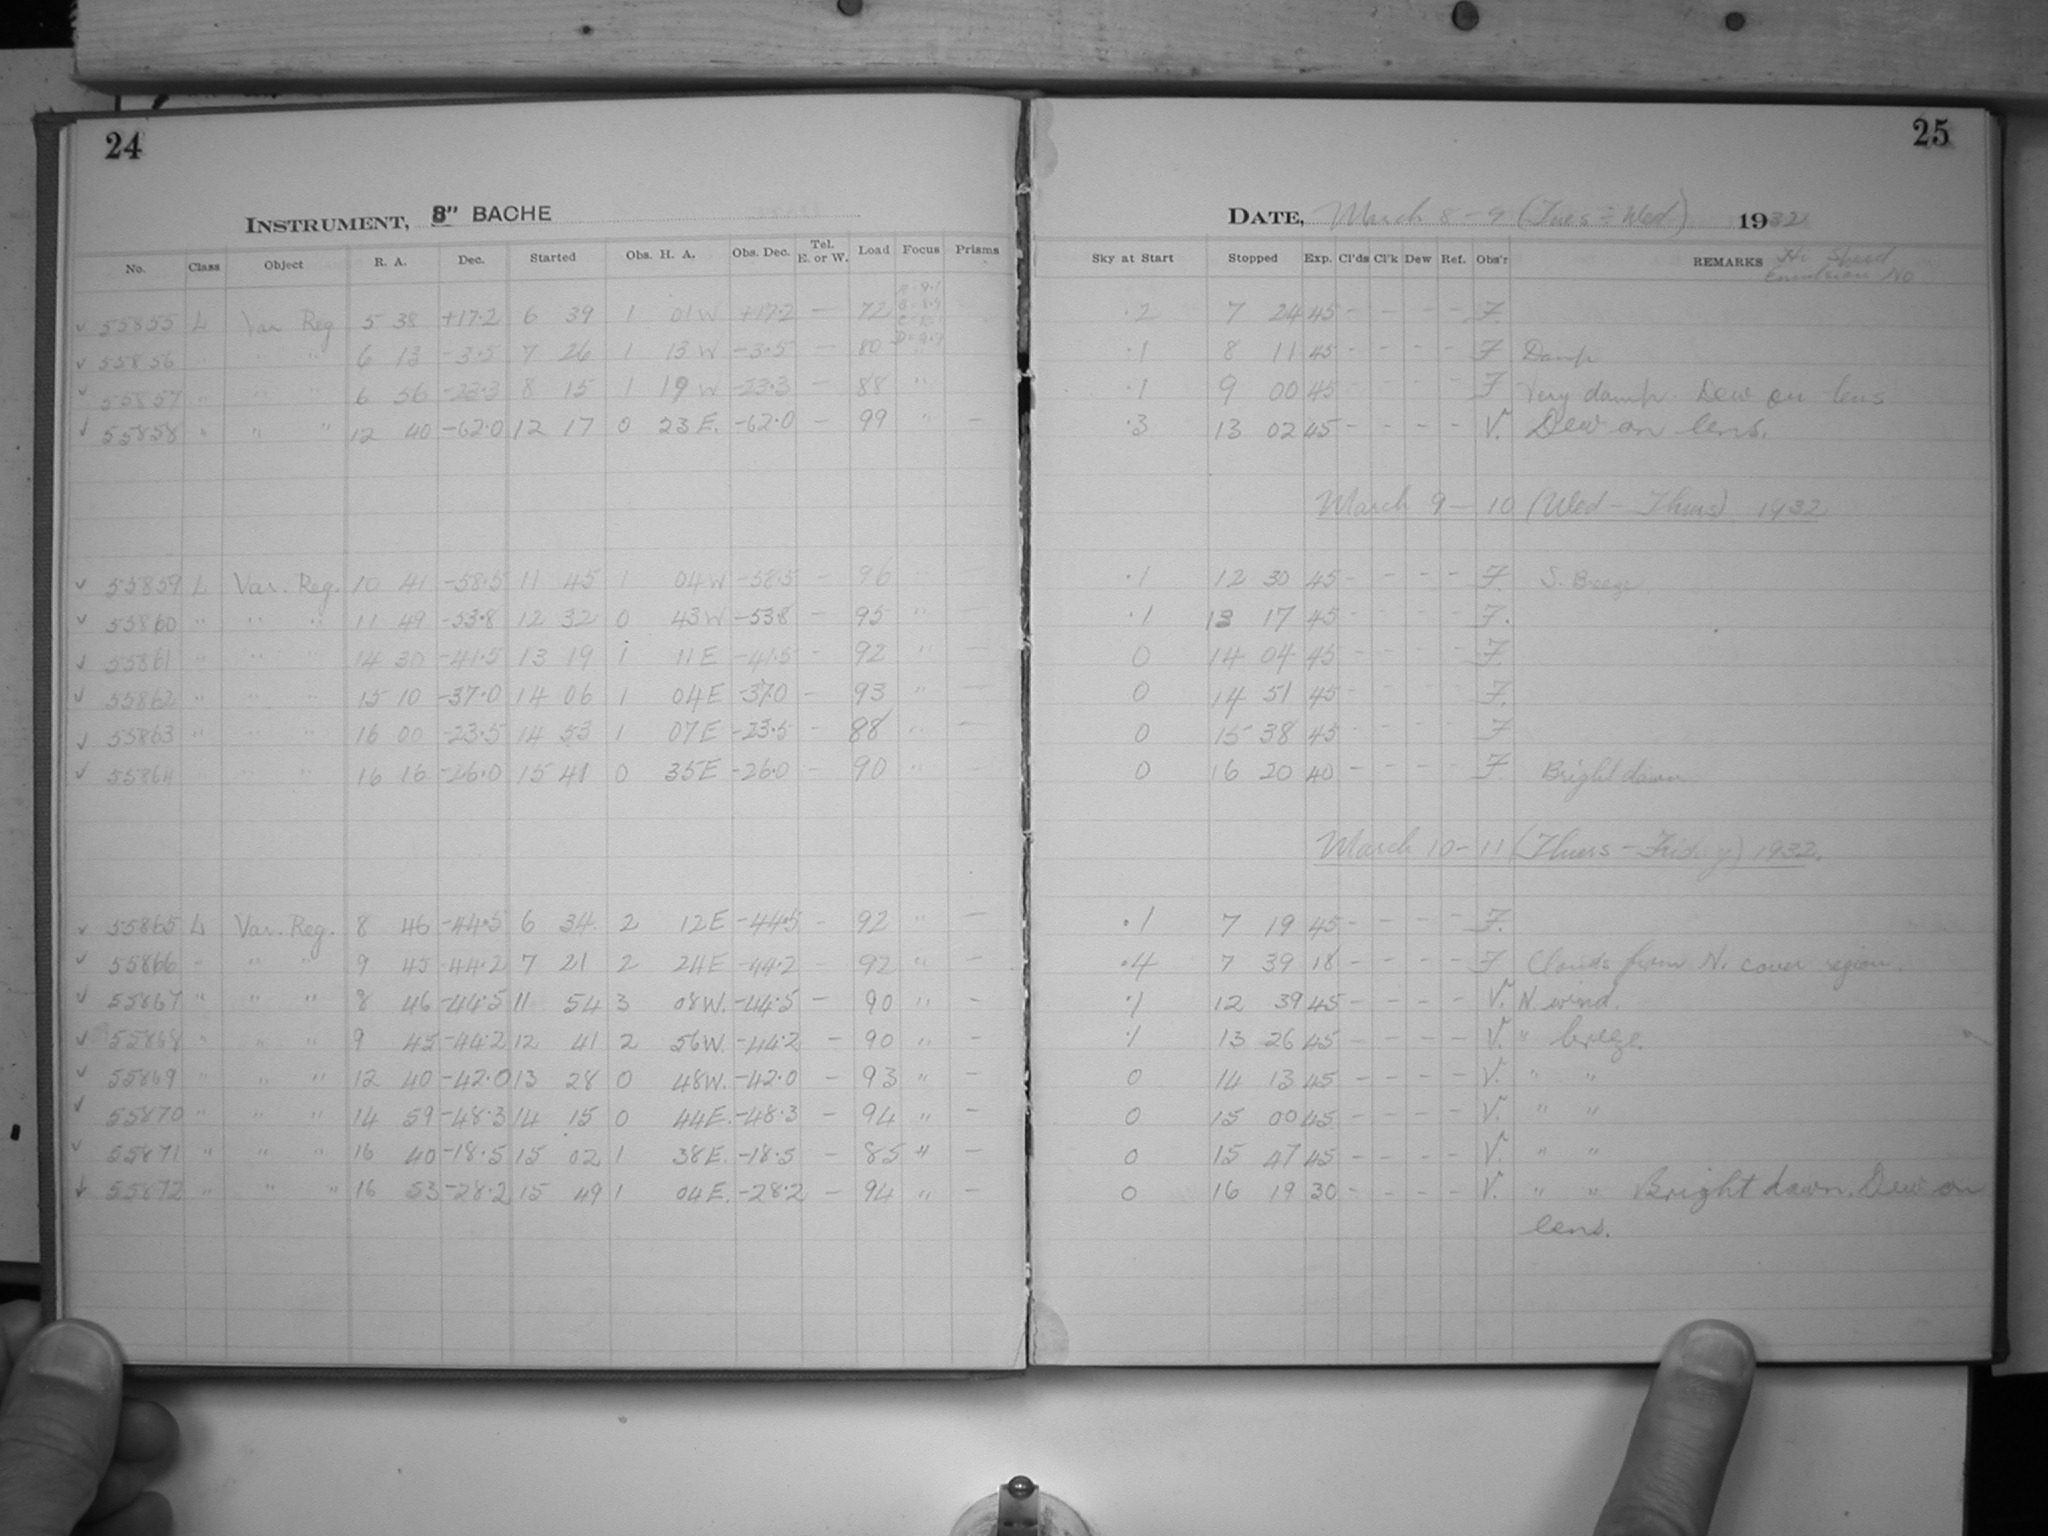 24
INSTRUMENT, 8" BACHE
No. Class Object R. A. Dec. Started Obs. H. A. Obs. Dec. Tel. E. or W. Load Focus Prisms
✓ 55855 L Var Reg 5 38 +17.2 6 39 1 01W +17.2 — 72
✓ 55856 " " " 6 13 -3.5 7 26 1 13 W -3.5 — 80 "
✓ 55857 " " " 6 56 -23.3 8 15 1 19 W -23.3 — 88 "
✓ 55858 " " " 12 40 -62.0 12 17 0 23 E. -62.0 — 99 " —
✓ 55859 L Var. Reg. 10 41 -58.5 11 45 1 04W -58.5 — 96 " —
✓ 55860 " " " 11 49 -53.8 12 32 0 43W -53.8 — 95 " —
✓ 55861 " " " 14 30 -41.5 13 19 1 11E -41.5 — 92 " —
✓ 55862 " " " 15 10 -37.0 14 06 1 04E -37.0 — 93 " —
✓ 55863 " " " 16 00 -23.5 14 53 1 07E -23.5 — 88 " —
✓ 55864 " " " 16 16 -26.0 15 41 0 35E -26.0 — 90 " —
✓ 55865 L Var. Reg. 8 46 -44.5 6 34 2 12E -44.5 — 92 " —
✓ 55866 " " " 9 45 -44.2 7 21 2 24E -44.2 — 92 " —
✓ 55867 " " " 8 46 -44.5 11 54 3 08W. -44.5 — 90 " —
✓ 55868 " " " 9 45 -44.2 12 41 2 56W. -44.2 — 90 " —
✓ 55869 " " " 12 40 -42.0 13 28 0 48W. -42.0 — 93 " —
✓ 55870 " " " 14 59 -48.3 14 15 0 44E. -48.3 — 94 " —
✓ 55871 " " " 16 40 -18.5 15 02 1 38E. -18.5 — 85 " —
✓ 55872 " " " 16 53 -28.2 15 49 1 04E. -28.2 — 94 " —
25
DATE, March 8-9 (Tues - Wed) 1932
Sky at Start Stopped Exp. Cl'ds Cl'k Dew Ref. Obs'r REMARKS Hi Speed
Emulsion No
.2 7 24 45 - - - - F.
.1 8 11 45 - - - - F Damp
.1 9 00 45 - - - - F Very damp. Dew on lens
.3 13 02 45 - - - - V. Dew on lens.
March 9-10 (Wed - Thurs) 1932
.1 12 30 45 - - - - F. S. Breeze
.1 13 17 45 - - - - F.
0 14 04 45 - - - - F.
0 14 51 45 - - - - F.
0 15 38 45 - - - - F
0 16 20 40 - - - - F. Bright dawn
March 10-11 (Thurs - Friday) 1932.
.1 7 19 45 - - - - F.
.4 7 39 18 - - - - F Clouds from N. cover region.
.1 12 39 45 - - - - V. N. wind.
.1 13 26 45 - - - - V. " breeze.
0 14 13 45 - - - - V. " "
0 15 00 45 - - - - V. " "
0 15 47 45 - - - - V. " "
0 16 19 30 - - - - V. " " Bright dawn. Dew on
lens.